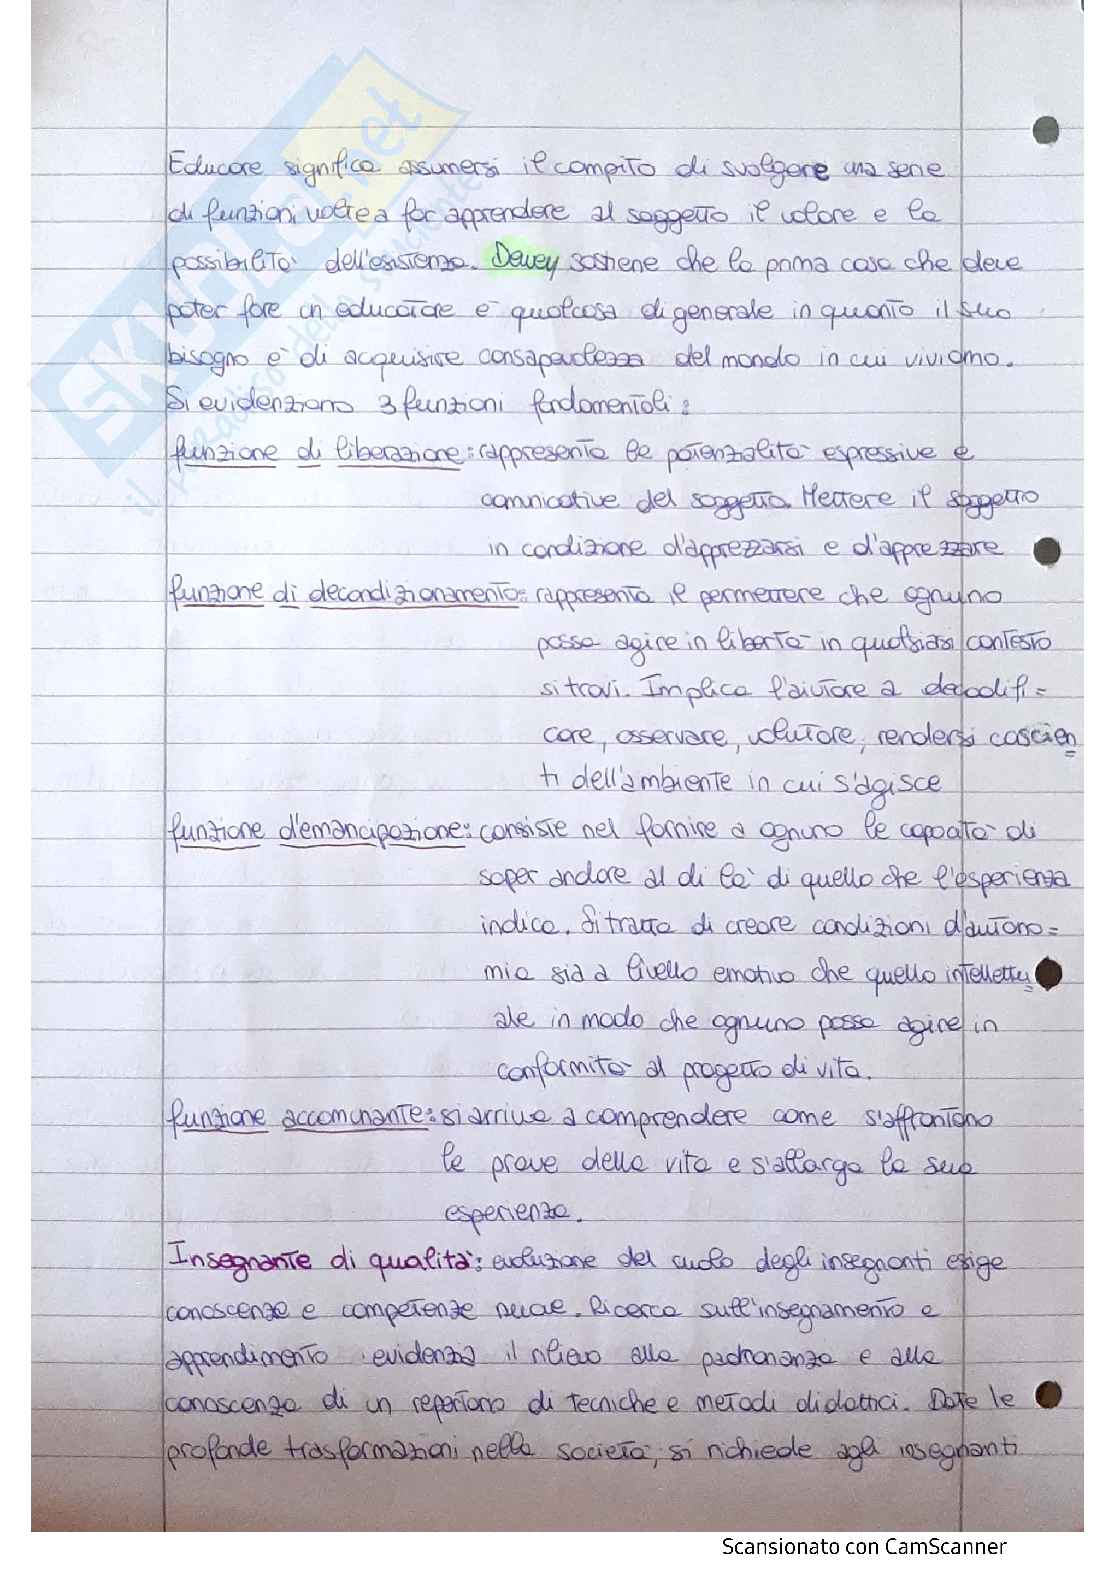 SKUOLA.net
il paradiso dello studente
Educare significa assumersi il compito di svolgere una serie
di funzioni volte a far apprendere al soggetto il valore e la
possibilità dell'esistenza. Dewey sostiene che la prima cosa che deve
poter fare un educatore è qualcosa di generale in quanto il suo
bisogno è di acquisire consapevolezza del mondo in cui viviamo.
Si evidenziano 3 funzioni fondamentali:
funzione di liberazione: rappresenta le potenzialità espressive e
comunicative del soggetto. Mettere il soggetto
in condizione d'apprezzarsi e d'apprezzare
funzione di decondizionamento: rappresenta il permettere che ognuno
possa agire in libertà in qualsiasi contesto
si trovi. Implica l'aiutare a decodifi=
care, osservare, valutare, rendersi coscien
ti dell'ambiente in cui s'agisce
funzione d'emancipazione: consiste nel fornire a ognuno le capacità di
saper andare al di là di quello che l'esperienza
indica. Si tratta di creare condizioni d'autono=
mia sia a livello emotivo che quello intellettu
ale in modo che ognuno possa agire in
conformità al progetto di vita.
funzione accomunante: si arriva a comprendere come s'affrontano
le prove della vita e s'allarga la sua
esperienza.
Insegnante di qualità: evoluzione del ruolo degli insegnanti esige
conoscenze e competenze nuove. Ricerca sull'insegnamento e
apprendimento evidenzia il rilievo alla padronanza e alla
conoscenza di un repertorio di tecniche e metodi didattici. Date le
profonde trasformazioni nella società, si richiede agli insegnanti
Scansionato con CamScanner